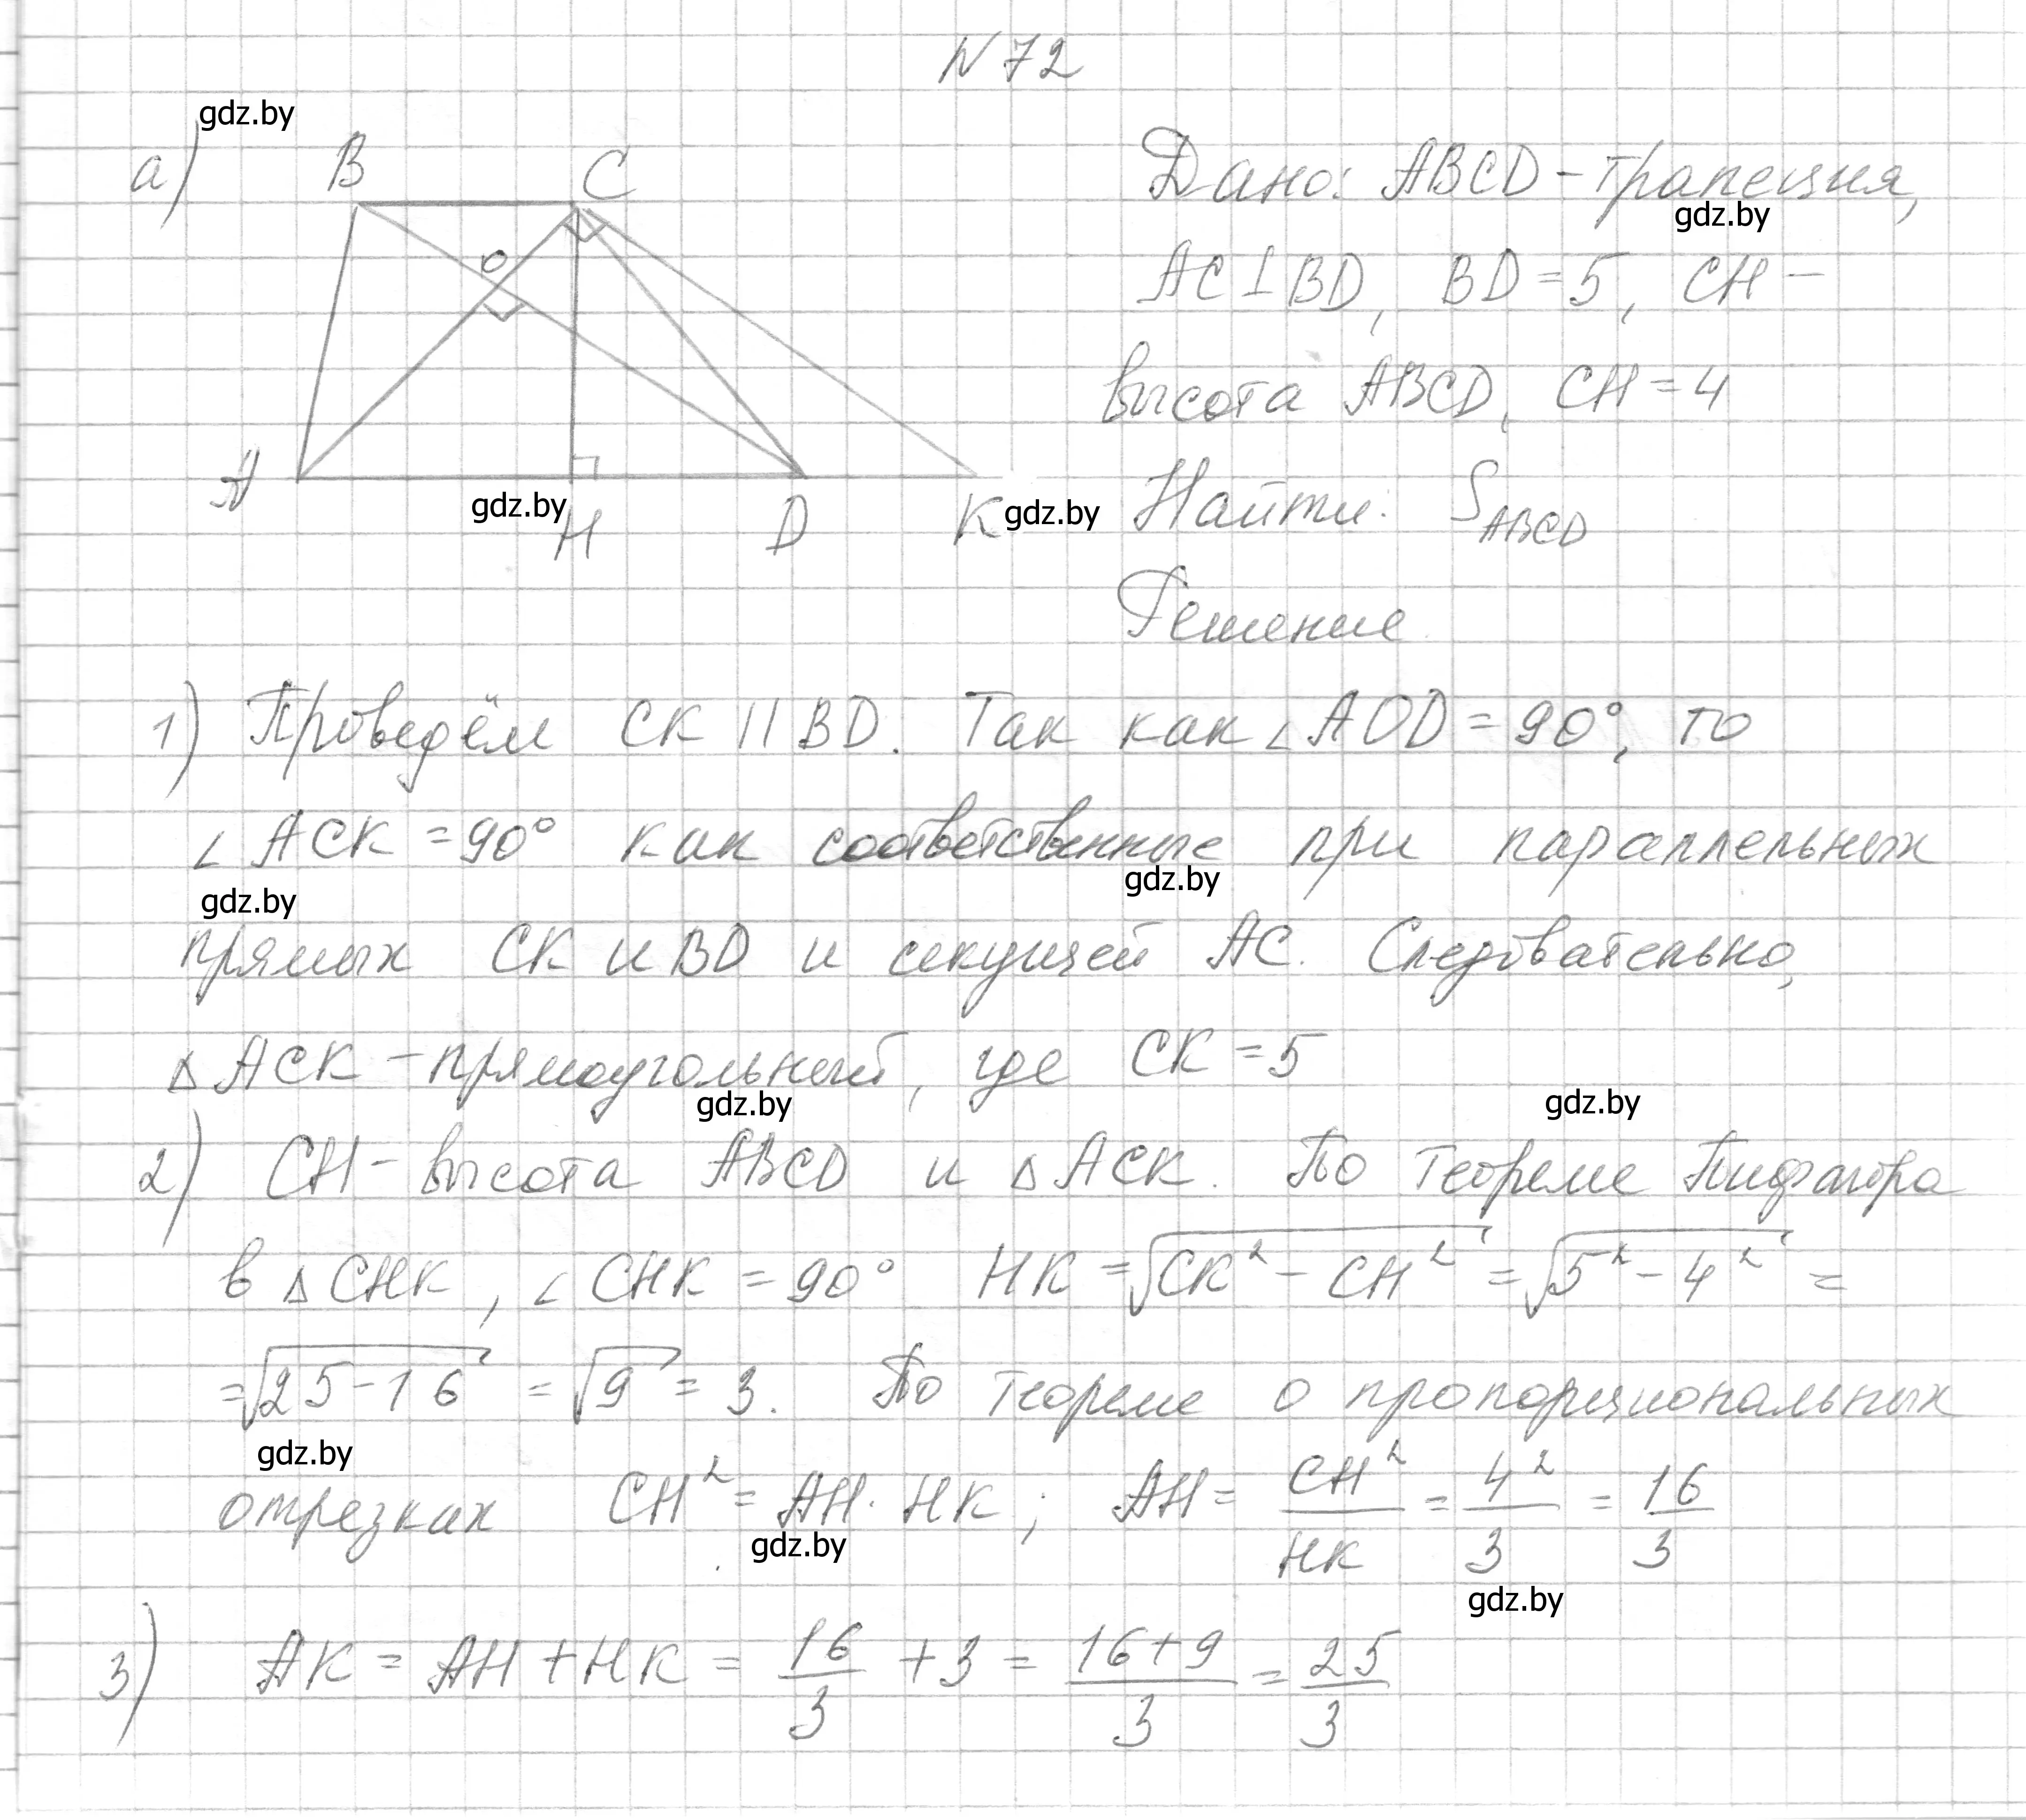 N 72
gdz.by
а)
B
C
O
A
gdz.by
H
D
K
gdz.by
Дано: ABCD - трапеция,
gdz.by
AC ⊥ BD, BD = 5, CH -
высота ABCD, CH = 4
Найти: S_ABCD
Решение
1) Проведём CK || BD. Так как ∠AOD = 90°, то
∠ACK = 90° как соответственные при параллельных
gdz.by gdz.by
прямых CK и BD и секущей AC. Следовательно,
△ACK - прямоугольный, где CK = 5
gdz.by gdz.by
2) CH - высота ABCD и △ACK. По теореме Пифагора
в △CHK, ∠CHK = 90° HK = √(CK² - CH²) = √(5² - 4²) =
= √(25 - 16) = √9 = 3. По теореме о пропорциональных
gdz.by
отрезках CH² = AH · HK; AH = CH²/HK = 4²/3 = 16/3
gdz.by
gdz.by
3) AK = AH + HK = 16/3 + 3 = (16+9)/3 = 25/3